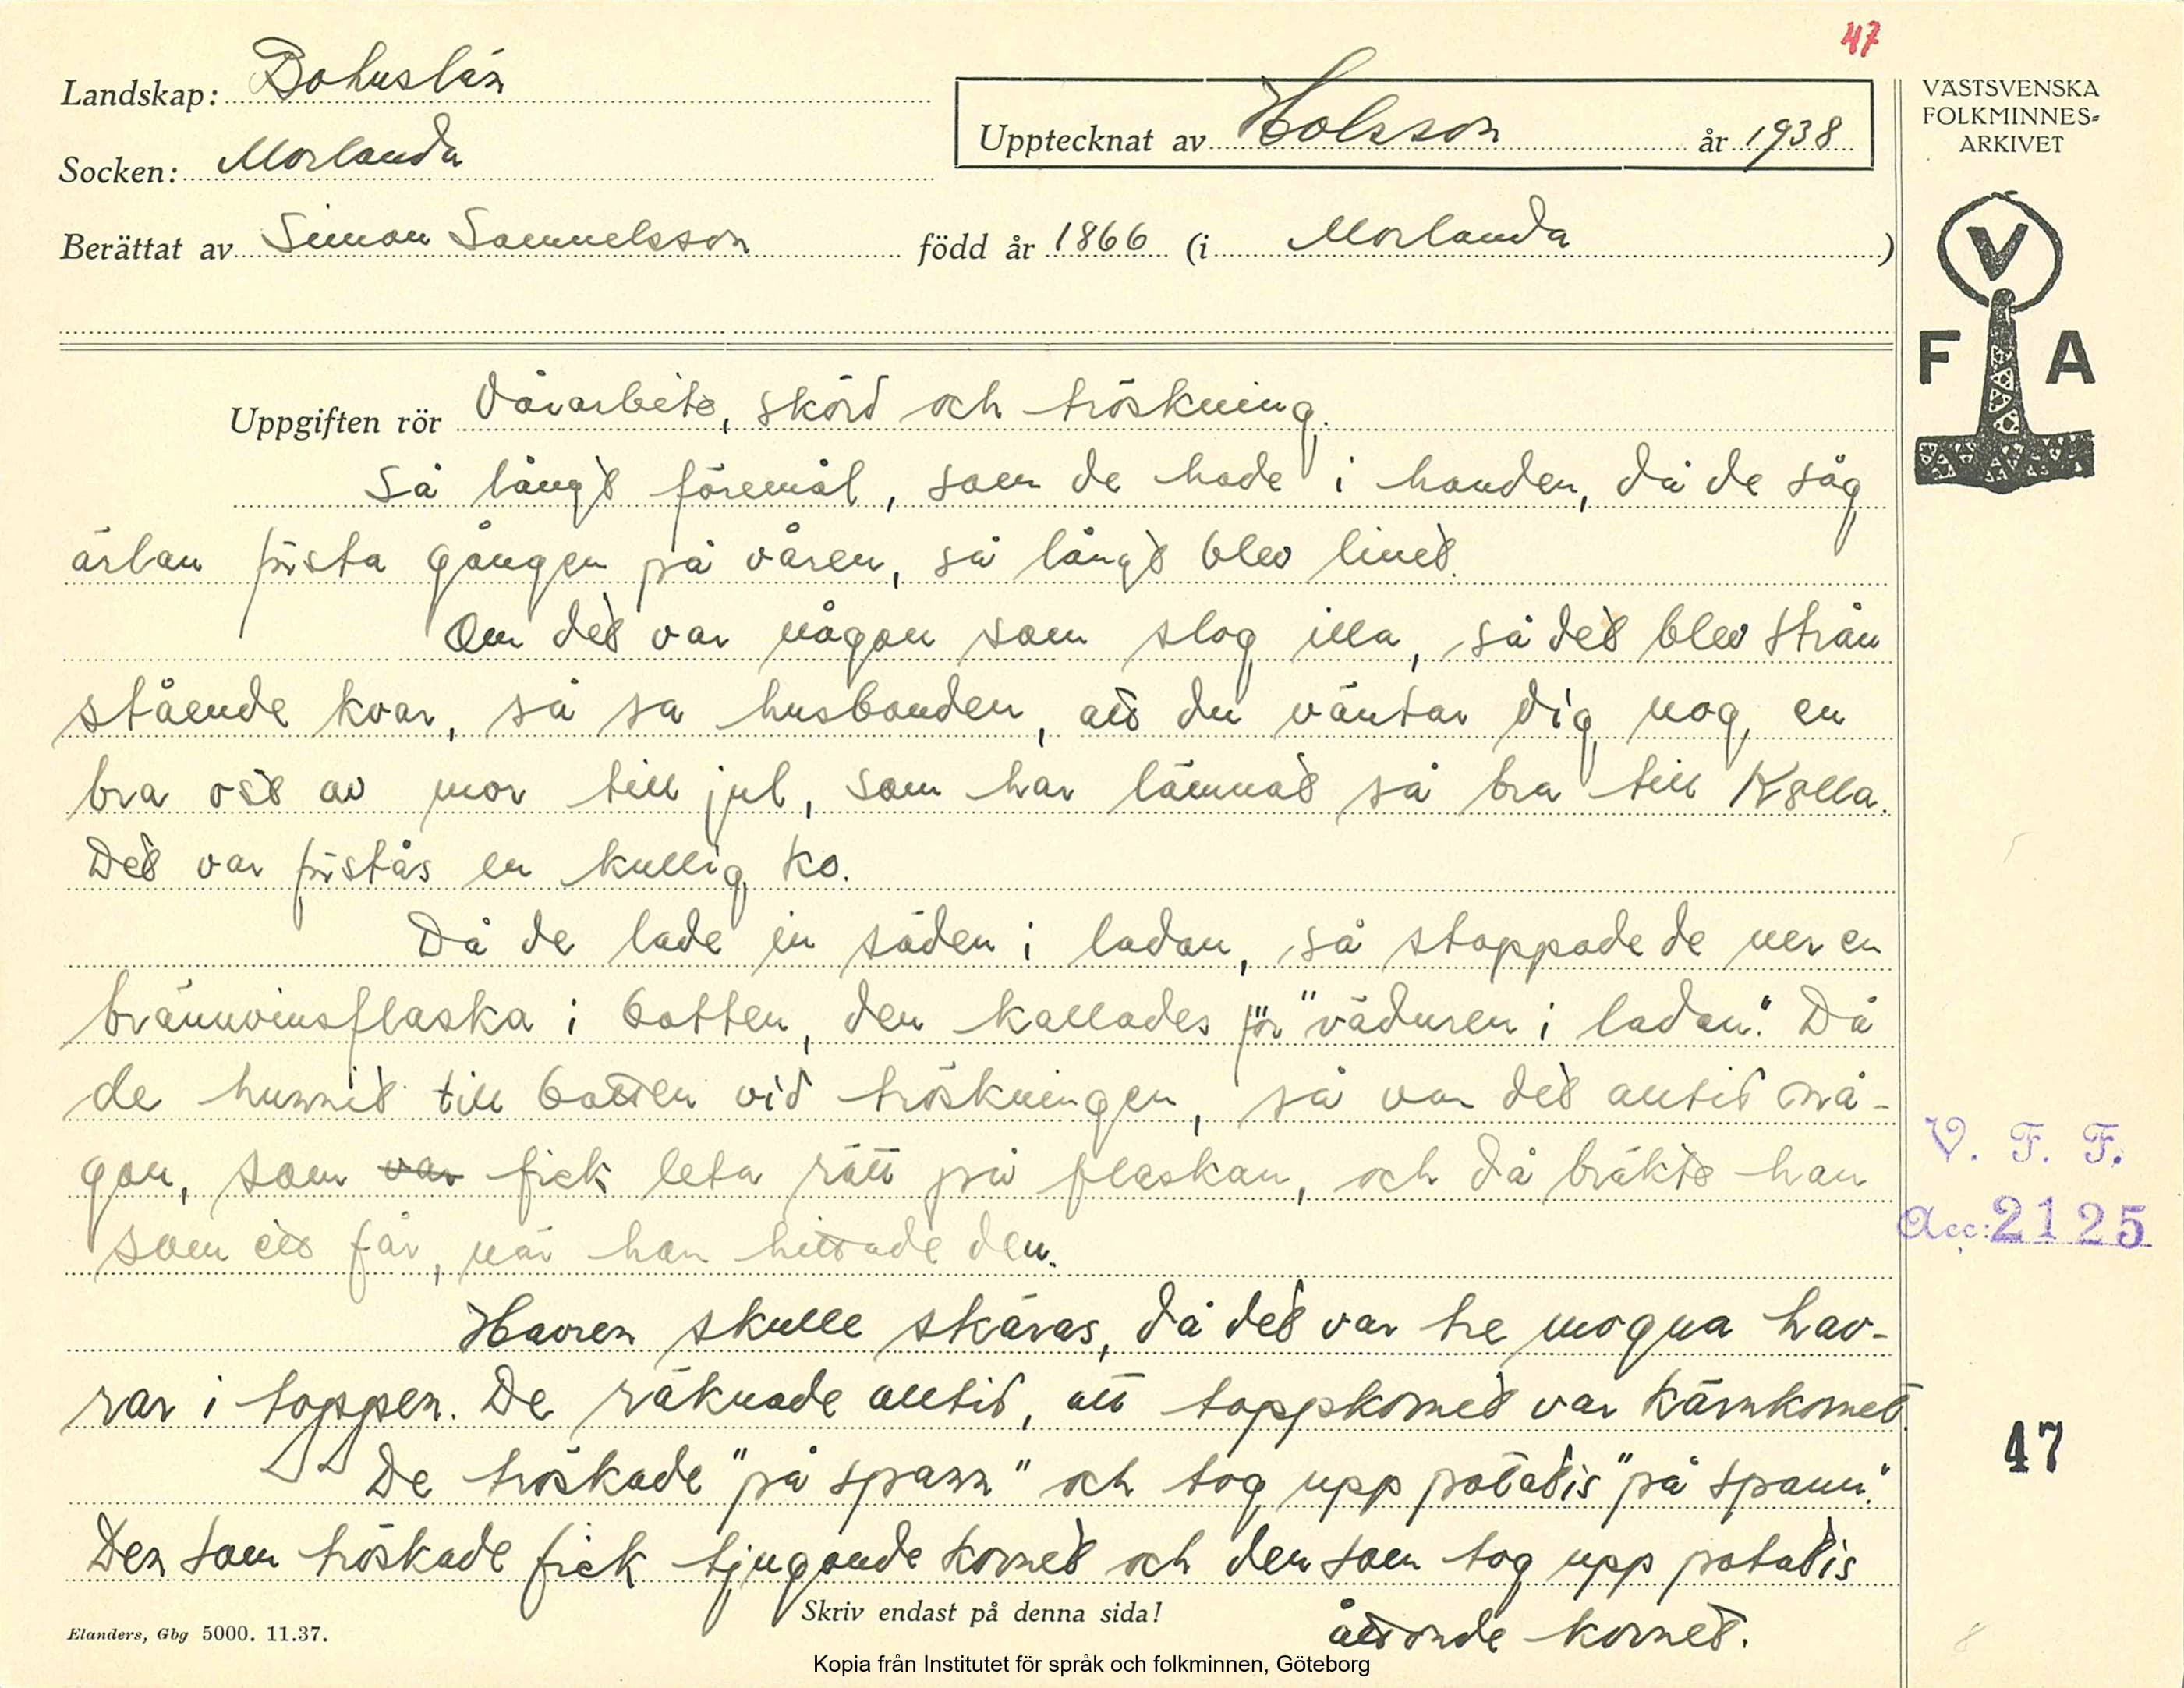 47
Landskap: Bohuslän
Socken: Morlanda
Upptecknat av Holsson år 1938
VÄSTSVENSKA
FOLKMINNES-
ARKIVET
Berättat av Simon Samuelsson född år 1866 (i Morlanda)
V
F A
Uppgiften rör Vårarbete, skörd och tröskning.
Så långt föremål, som de hade i handen, då de såg
ärlan första gången på våren, så långt blev linet.
Om det var någon som slog illa, så det blev strån
stående kvar, så sa husbonden, att du väntar dig nog en
bra ost av mor till jul, som har lämnat så bra till Kölla.
Det var förstås en kullig ko.
Då de lade in säden i ladan, så stoppade de ner en
brännvinsflaska i botten, den kallades för "väduren i ladan". Då
de hunnit till botten vid tröskningen, så var det alltid nå-
gon, som var fick leta rätt på flaskan, och då bräkte han
som ett får, när han hittade den.
V. F. F.
Acc: 2125
Havren skulle skäras, då det var tre mogna hav-
rar i toppen. De räknade alltid, att toppkornet var kärnkornet.
47
De tröskade "på spann" och tog upp potatis "på spann".
Den som tröskade fick tjugonde kornet och den som tog upp potatis
åttonde kornet.
Skriv endast på denna sida!
Elanders, Gbg 5000. 11.37.
Kopia från Institutet för språk och folkminnen, Göteborg